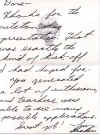 Dave -
Thanks for the
presentation. That
was exactly the
kind of kick-off
I had hoped for.
You generated
a lot of enthusiasm
and teachers were
able to see many
possible applications.